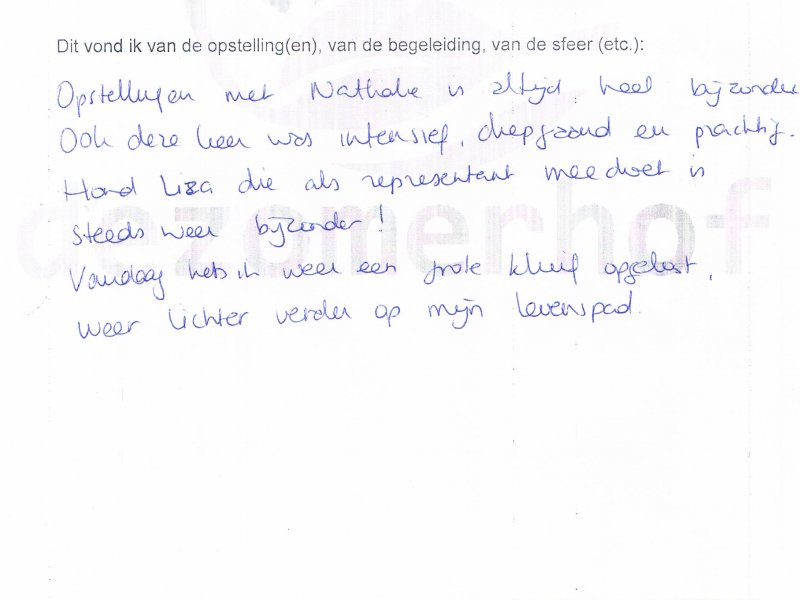 Dit vond ik van de opstelling(en), van de begeleiding, van de sfeer (etc.):
Opstellingen met Nathalie is altijd heel bijzonder
Ook deze keer was intensief, diepgaand en prachtig.
Hond Liza die als representant meedoet is
steeds weer bijzonder!
Vandaag heb ik weer een grote kluif opgelost,
weer lichter verder op mijn levenspad.
dezomerhof